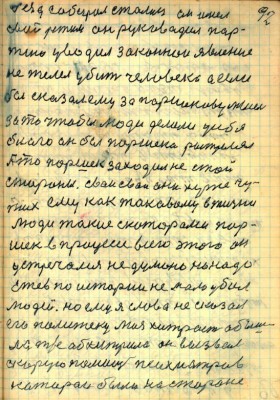 сезд собирал сталин он имел
свой режим он руководил пар-
тию уводил законной явление
не жемел убит человека а если
бы сказалему за поршиковужили
зато чтобы люди делали у себя
благо он был поршека
А то поршек заходил не стой
стороны. свои свои они хуже чу-
жих ему как таковому в жизни
люди такие с которами пор-
шек в процесе всего этого он
устречался не думоно на надо
стев по истории не мало убил
людей. но ему я слова не сказал
его политеку, моя хитрост обхи-
ла обхитрила он вызвал
скорую помощ психиатров
каторая была на стороне